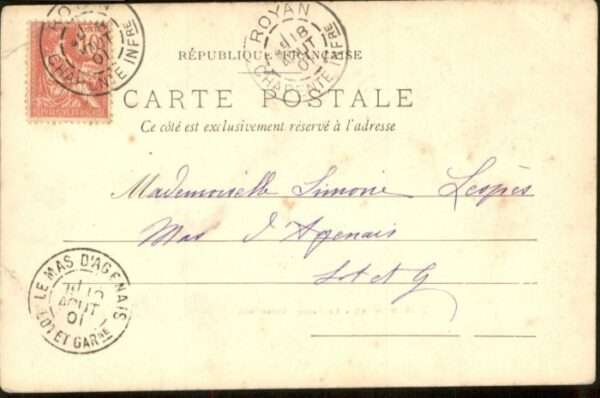 ROYAN
18
AOUT
01
CHARENTE INFRE
RÉPUBLIQUE FRANÇAISE
CARTE POSTALE
Ce côté est exclusivement réservé à l'adresse
Mademoiselle Simone Lespès
Mas d'Agenais
Lot et G
LE MAS D'AGENAIS
AOUT
01
LOT ET GARNE